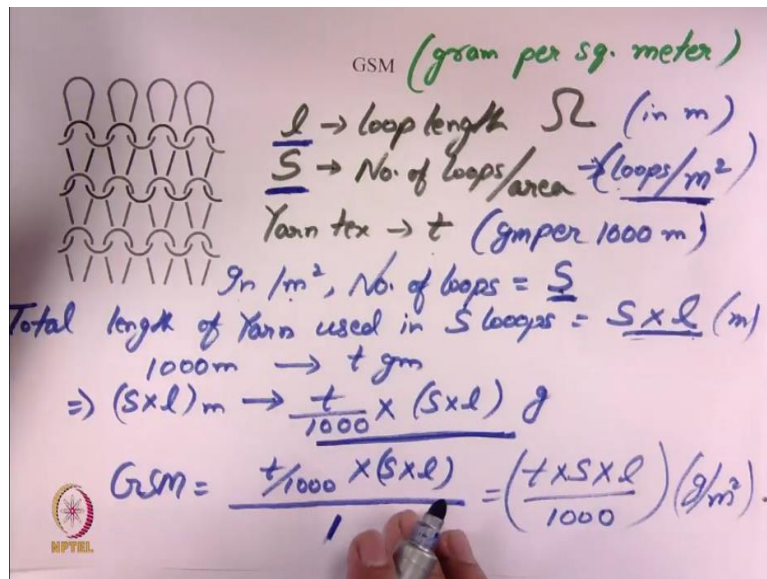 GSM (gram per sq. meter)
l → Loop length Ω (in m)
S → No. of Loops/area → (loops/m²)
Yarn tex → t (gm per 1000 m)
In 1m², No. of loops = S
Total length of Yarn used in S looops = S x l (m)
1000m → t gm
⇒ (S x l) m → t/1000 x (S x l) g
GSM = t/1000 x (S x l) / 1 = (t x S x l / 1000) (g/m²).
NPTEL